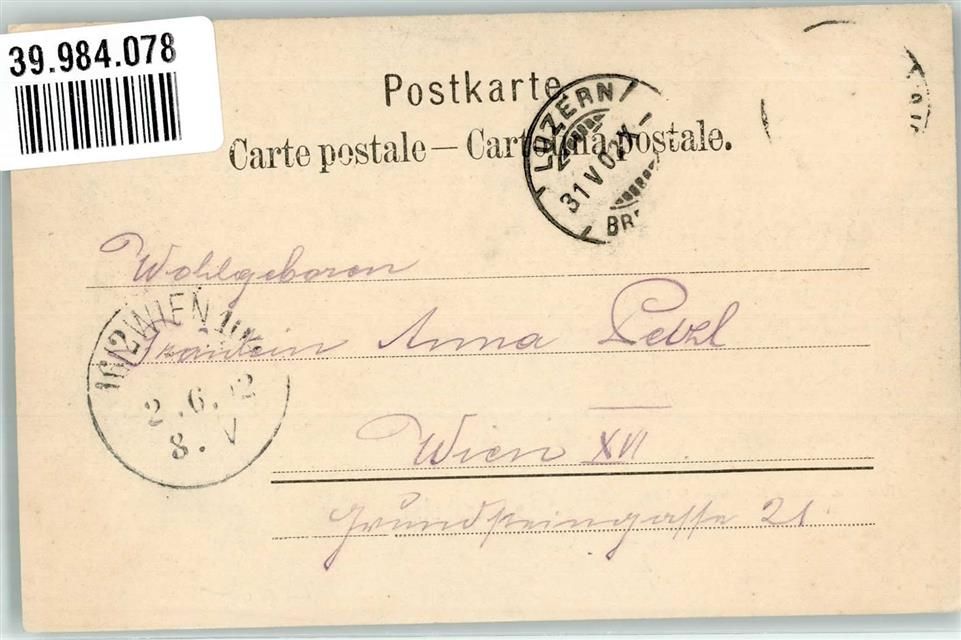 39.984.078
Postkarte
Carte postale — Cartolina postale.
LUZERN
31 V 02
BR
Wohlgeboren
Fräulein Anna
Wien XVI
Grundsteingasse 21
WIEN
2.6.02
8. V